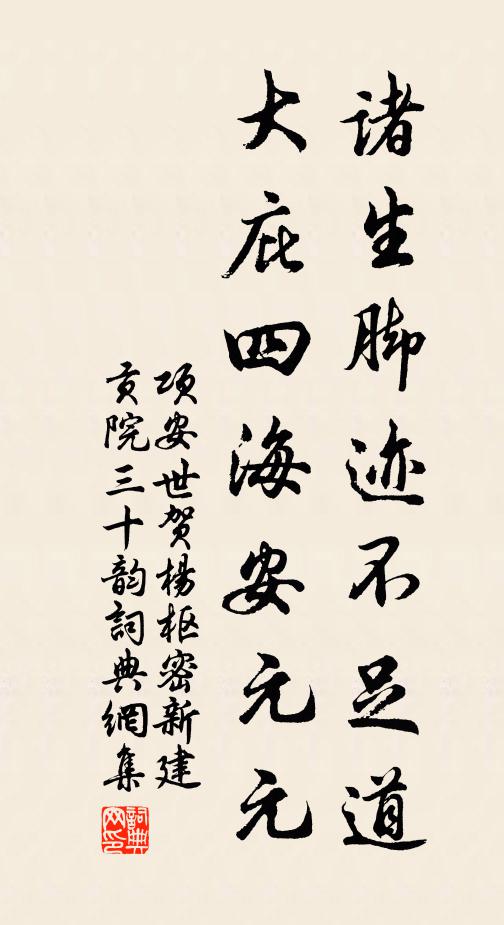 诸生脚迹不足道
大庇四海安元元
项安世贺杨枢密新建
贡院三十韵词典網集
詞典
网印